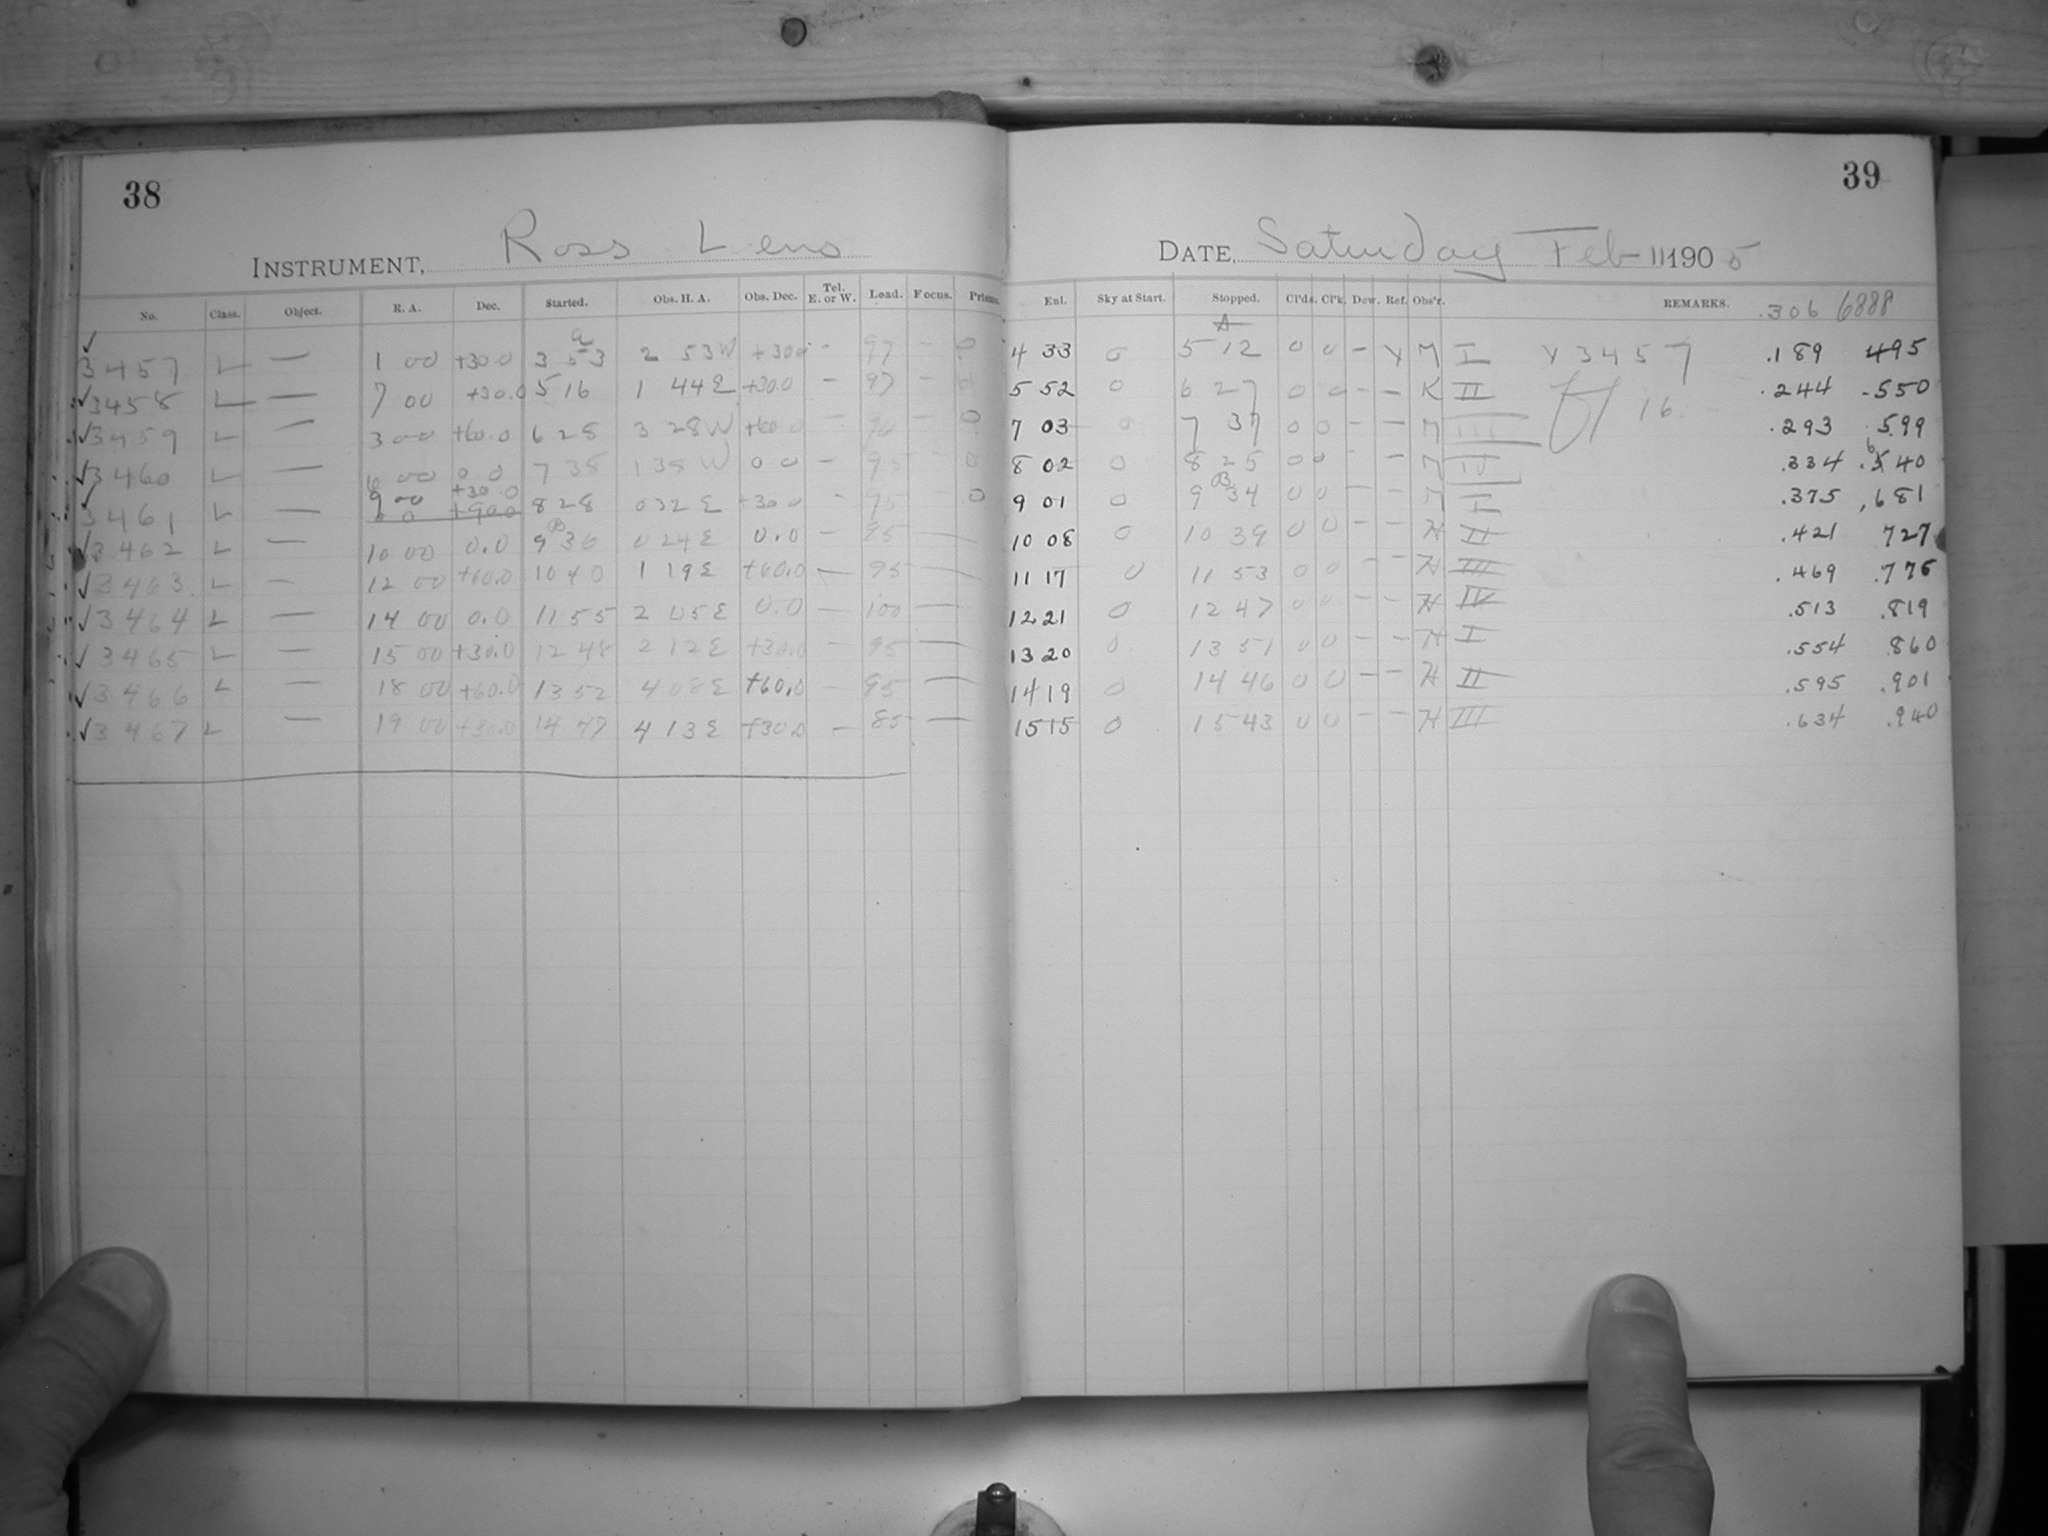 38
INSTRUMENT, Ross Lens
No. Class. Object. R. A. Dec. Started. Obs. H. A. Obs. Dec. Tel. E. or W. Load. Focus. Prisms.
✓ 3457 L — 1 00 +30.0 3 53 2 53W +30.0 - 97 - 0
✓3458 L — 7 00 +30.0 5 16 1 44E +30.0 - 97 -
✓3459 L — 3 00 +60.0 6 28 3 28W +60 0 - 90 - 0
✓3460 L — 6 00 0.0 7 38 1 38W 0 0 - 95 - 0
✓ 3461 L — 9 00 +30.0 8 28 0 32E +30 0 - 95 - 0
0 0 +90.0
✓3462 L — 10 00 0.0 9 36 0 24E 0.0 - 95 —
✓3463 L — 12 00 +60.0 10 40 1 19E +60.0 — 95 —
✓3464 L — 14 00 0.0 11 55 2 05E 0.0 — 100 —
✓3465 L — 15 00 +30.0 12 48 2 12E +30.0 — 95 —
✓3466 L — 18 00 +60.0 13 52 4 08E +60.0 — 95 —
✓3467 L — 19 00 +30.0 14 47 4 13E +30.0 — 85 —
39
DATE, Saturday Feb 11 1905
Enl. Sky at Start. Stopped. Cl'ds. Cl'k. Dew. Ref. Obs'r. REMARKS. .306 6888
A
4 33 0 5 12 0 0 - Y M I Y 3457 .189 495
5 52 0 6 27 0 0 - - K II .244 .550
16
7 03 0 7 37 0 0 - - M III .293 .599
8 02 0 8 25 0 0 - - M IV .334 .640
B
9 01 0 9 34 0 0 - - M I .375 .681
10 08 0 10 39 0 0 - - H II .421 727
11 17 0 11 53 0 0 - - H III .469 .775
12 21 0 12 47 0 0 - - H IV .513 .819
13 20 0 13 51 0 0 - - H I .554 .860
14 19 0 14 46 0 0 - - H II .595 .901
15 15 0 15 43 0 0 - - H III .634 .940